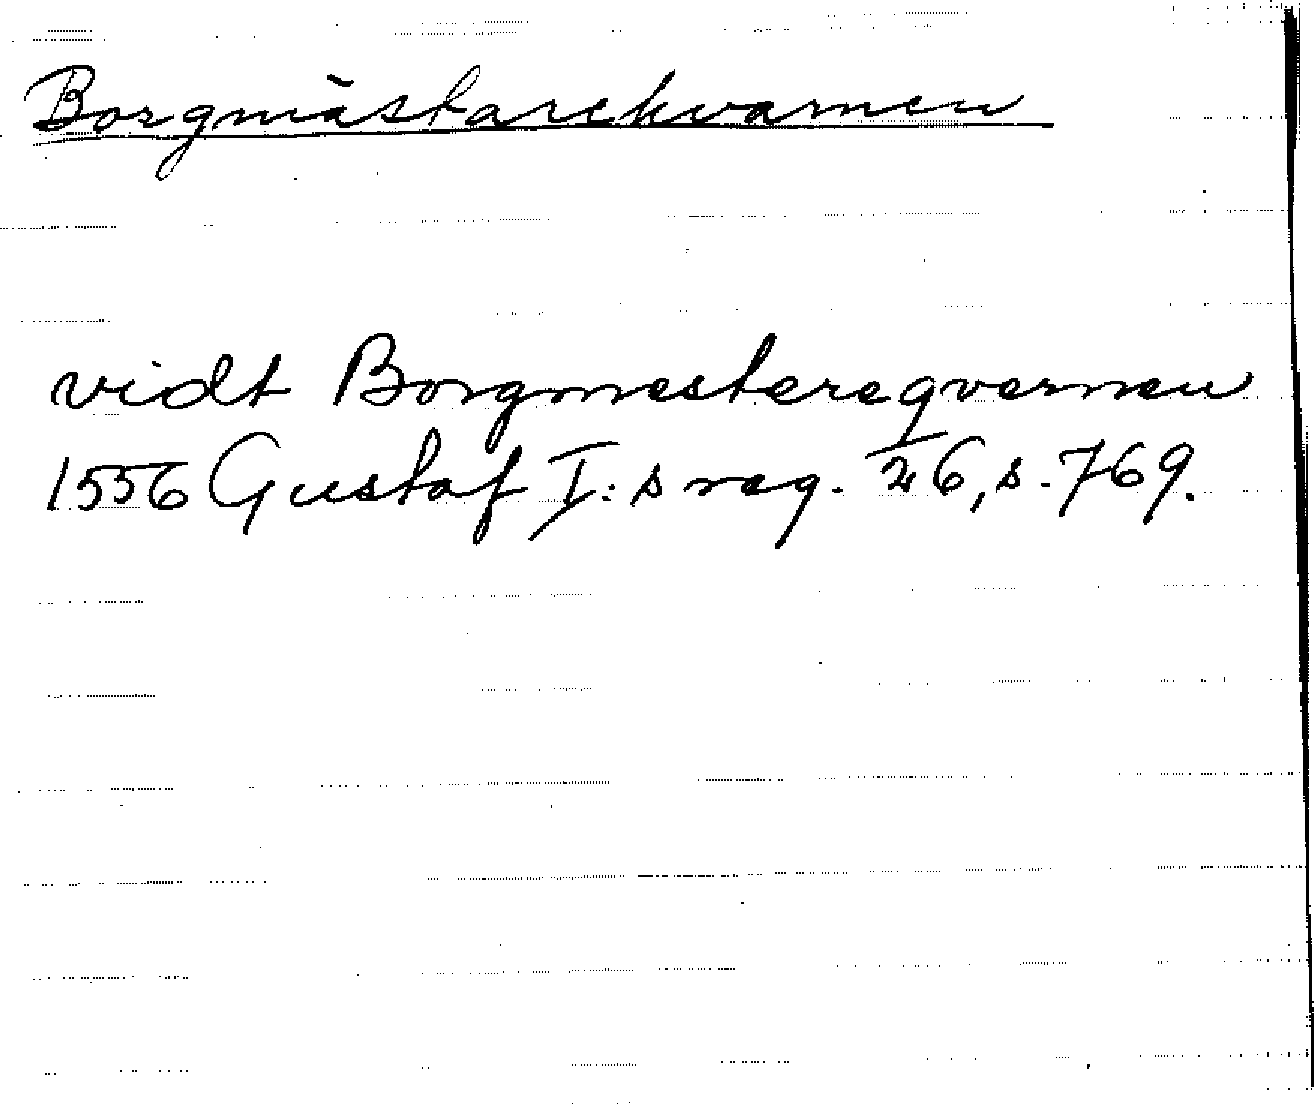 Borgmästarekvarnen
vidt Borgmestereqvernen
1556 Gustaf I:s reg. 26, s. 769.